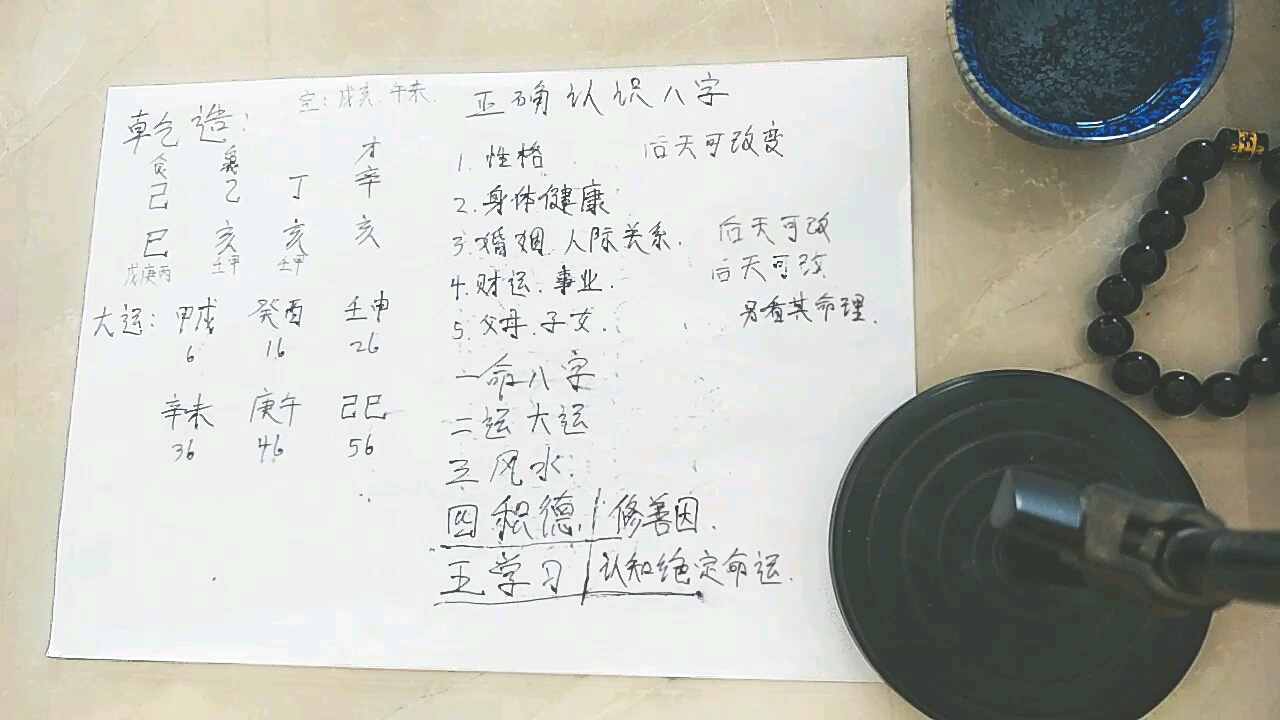 空：戌亥 午未
乾造：
食 枭 才
己 乙 丁 辛
巳 亥 亥 亥
戊庚丙 壬甲 壬甲
大运：甲戌 癸酉 壬申
6 16 26
辛未 庚午 己巳
36 46 56
正确认识八字
1. 性格 后天可改变
2. 身体健康
3. 婚姻、人际关系． 后天可改
4. 财运、事业． 后天可改
5. 父母、子女． 另看其命理．
一命八字
二运大运
三风水．
四积德．| 修善因．
五学习 | 认知绝定命运．